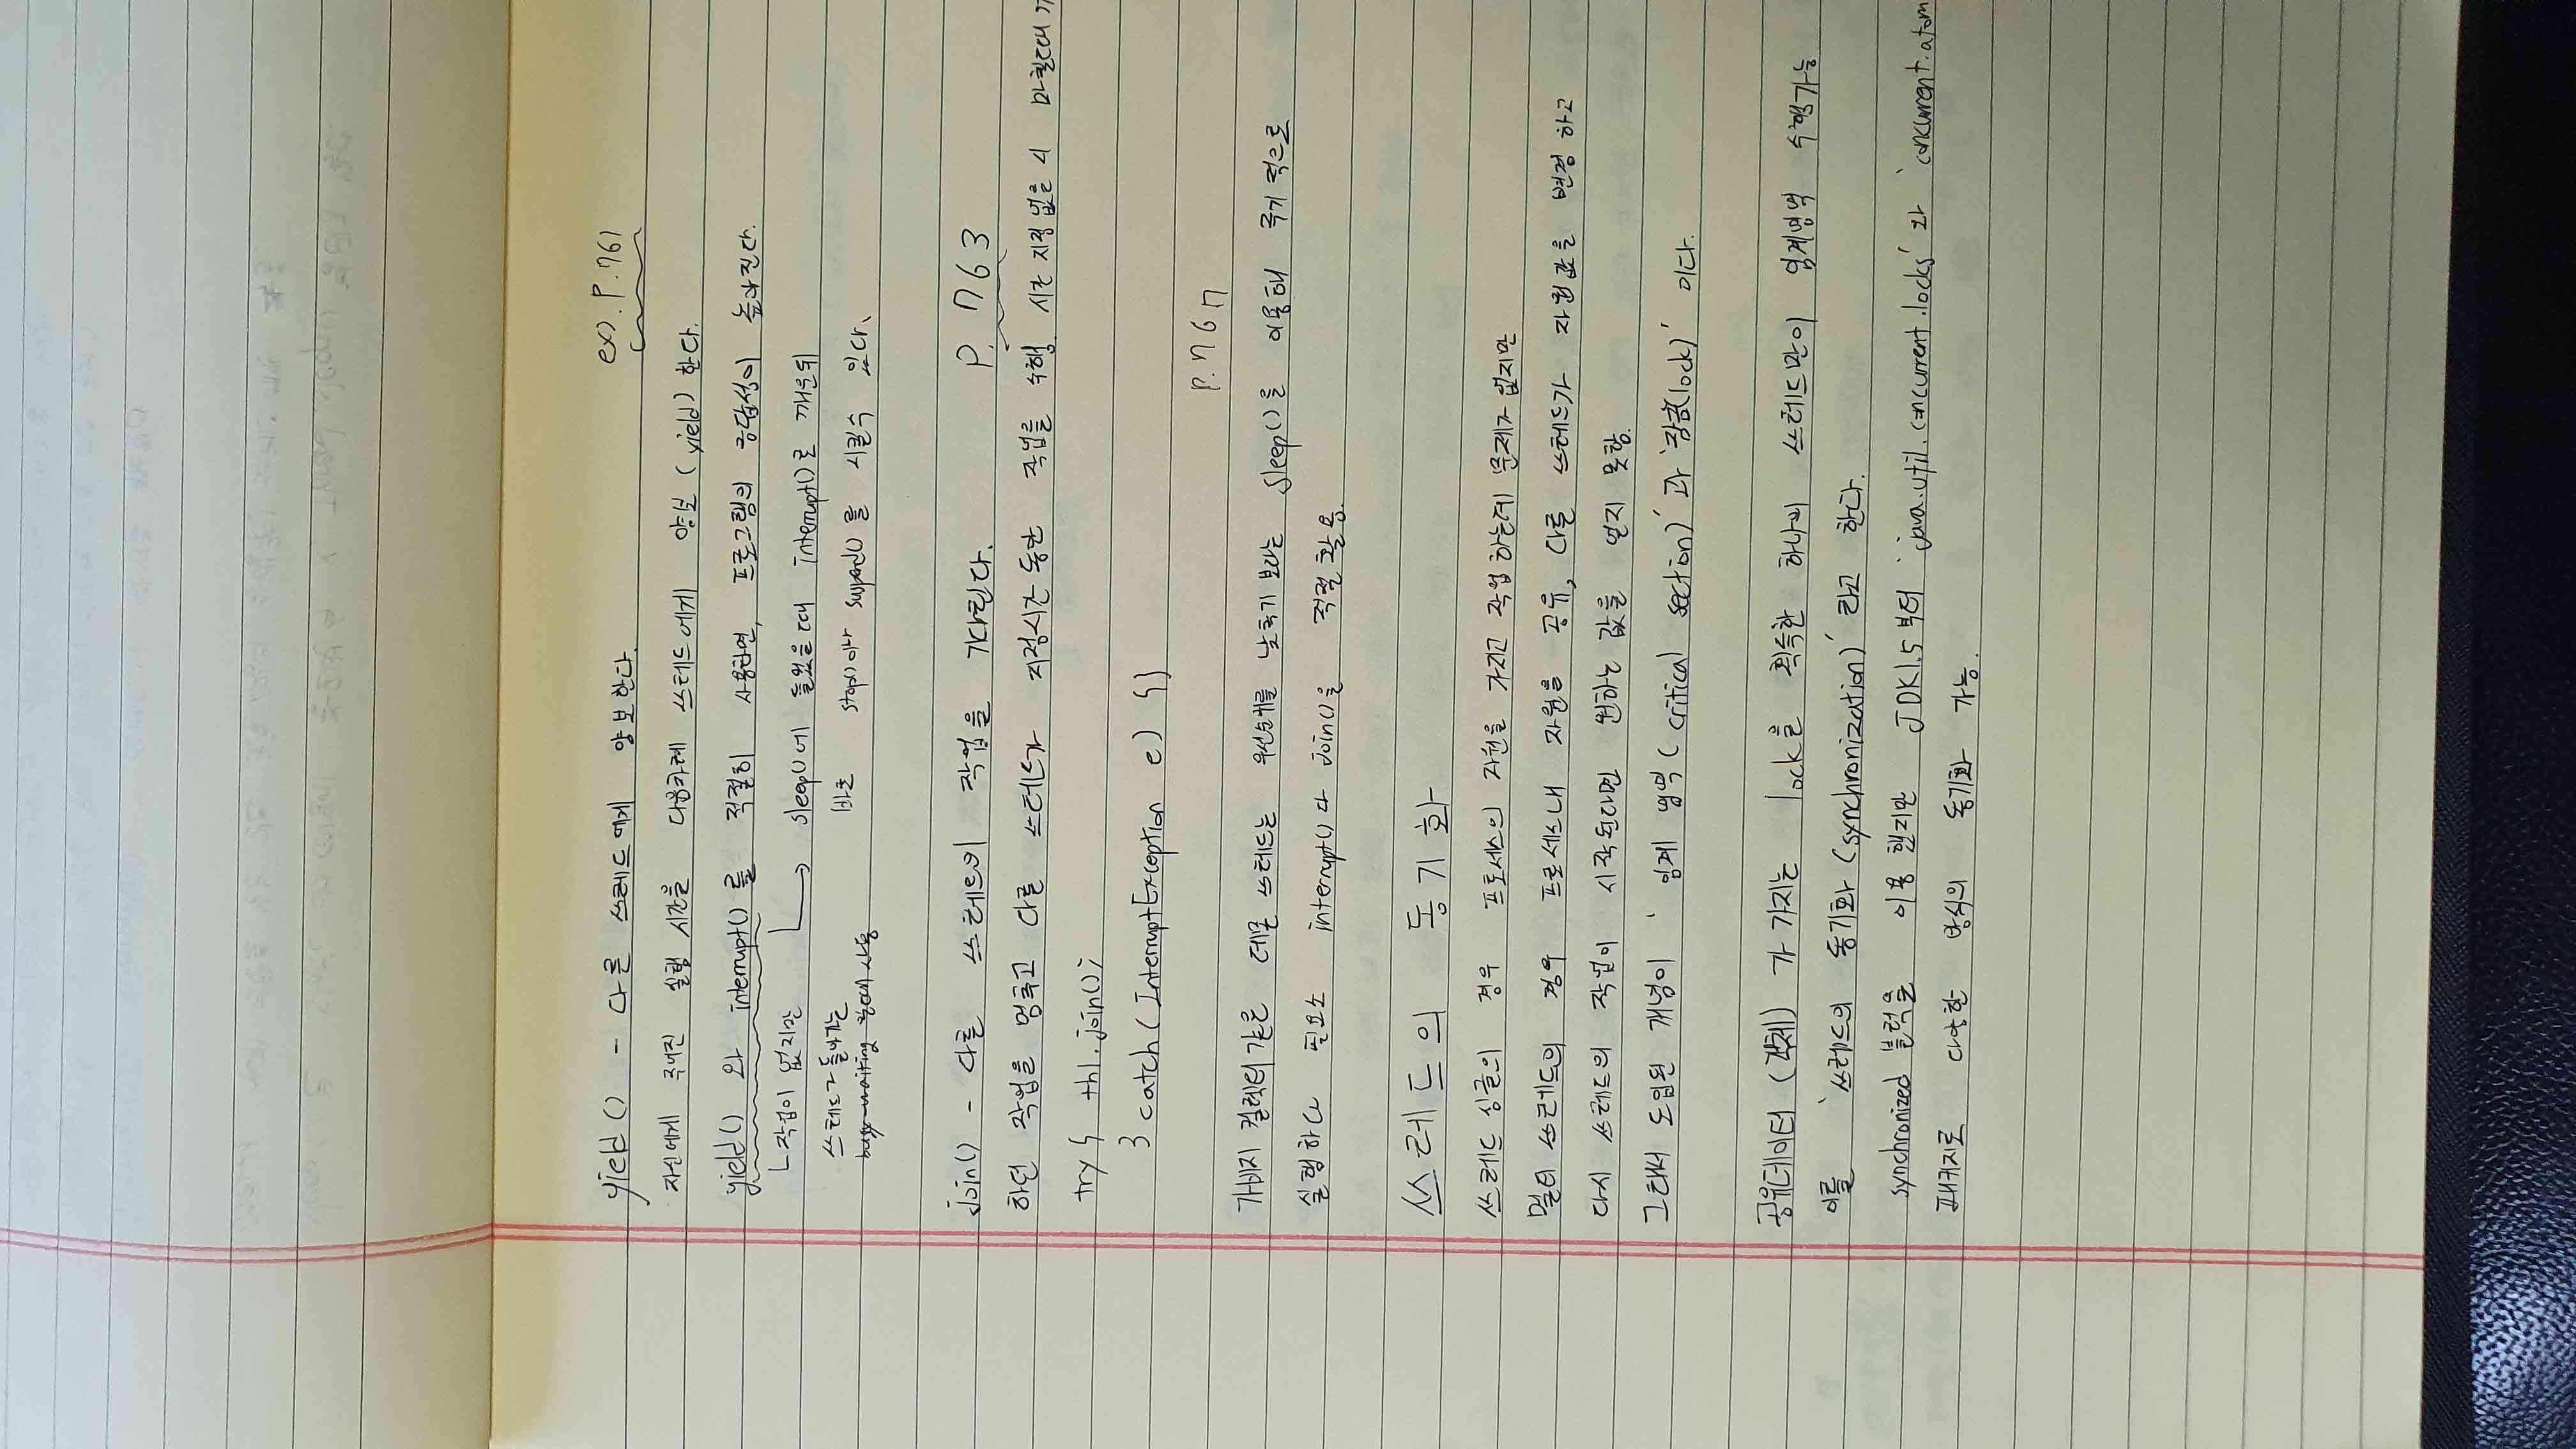 yield() - 다른 쓰레드에게 양보한다. ex). P.761
자신에게 주어진 실행 시간을 다음차례 쓰레드에게 양보 (yield) 한다.
yield() 와 interrupt()를 적절히 사용하면, 프로그램의 응답성이 높아진다.
작업이 없지만 sleep()에 들었을때 interrupt()로 깨운뒤
쓰레드가 돌아가는 바로 stop()이나 suspend()를 시킬수 있다.
busy-waiting 할때 사용
join() - 다른 쓰레드의 작업을 기다린다. P. 763
하던 작업을 멈추고 다른 쓰레드가 지정시간 동안 작업을 수행 시간 지정 없을 시 마칠때
try { th1.join();
} catch (InterruptException e) {}
P.767
가비지 컬렉터 같은 데몬 쓰레드는 우선순위를 낮추기 보다는 sleep()을 이용해 주기적으로
실행하다 필요소 interrupt()다 join()을 적절 활용.
쓰레드의 동기화
쓰레드 싱글의 경우 프로세스의 자원을 가지고 작업 하는데 문제가 없지만
멀티 쓰레드의 경우 프로세스내 자원을 공유, 다른 쓰레드가 자원값을 변경 하고
다시 쓰레드의 작업이 시작된다면 원하는 값을 얻지 못함.
그래서 도입된 개념이 '임계 영역(critical section)'과 '잠금(lock)' 이다.
공유데이터 (객체) 가 가지는 lock을 획득한 하나의 쓰레드만이 임계영역 수행가능
이를 '쓰레드의 동기화 (synchronization)' 라고 한다.
synchronized 블럭을 이용 했지만 JDK1.5 부터 'java.util.concurrent.locks' 와 'concurrent.atom
패키지로 다양한 방식의 동기화 가능.